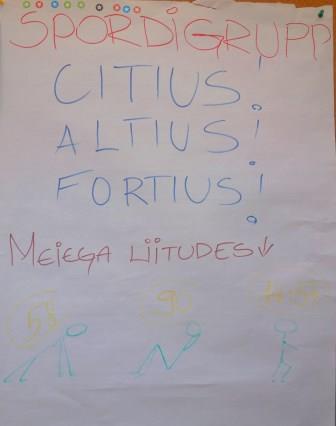 SPORDIGRUPP
CITIUS!
ALTIUS!
FORTIUS!
MEIEGA LIITUDES
90